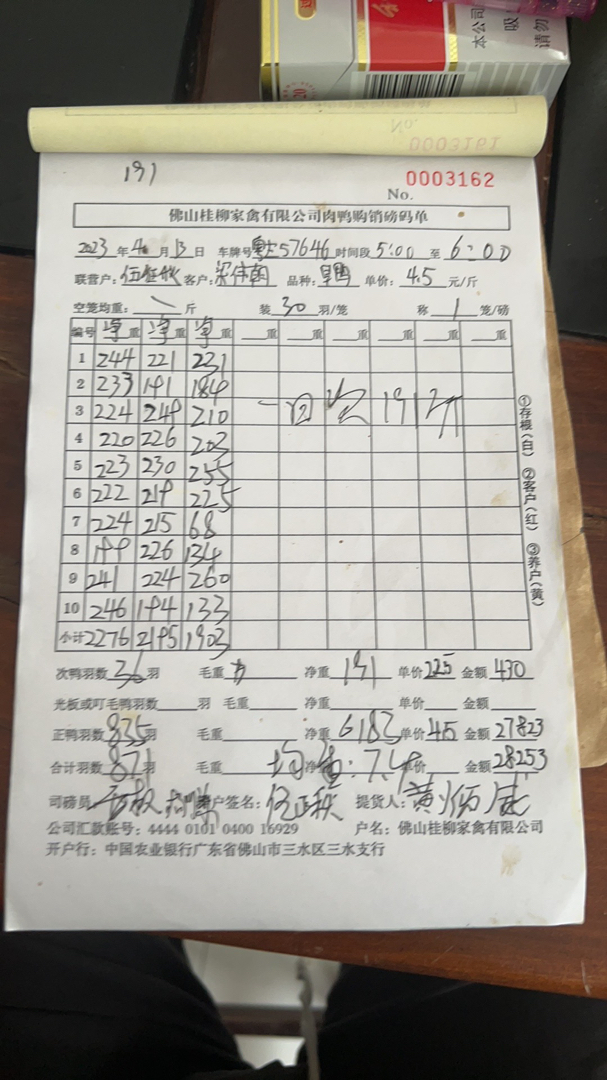 本公司
吸
请勿
No.
0003161
191
No. 0003162
佛山桂柳家禽有限公司肉鸭购销磅码单
2023年4月13日 车牌号 57646 时间段 5:00 至 6:00
联营户: 客户: 品种: 单价: 4.5 元/斤
空笼均重: 斤 装 30 羽/笼 称 1 笼/磅
编号 净重 净重 净重 重 重 重 重 重 重
1 244 221 231
2 233 191 184
3 224 249 210 191
4 220 226 203
5 223 230 255
6 222 219 225
7 224 215 68
8 199 226 134
9 241 224 260
10 246 194 133
小计 2276 2195 1903
①存根(白) ②客户(红) ③养户(黄)
次鸭羽数 36 羽 毛重 净重 191 单价 2.25 金额 430
光板或叮毛鸭羽数 羽 毛重 净重 单价 金额
正鸭羽数 835 羽 毛重 净重 6183 单价 4.5 金额 27823
合计羽数 871 羽 毛重 净重 均重: 7.4 单价 金额 28253
司磅员 客户签名: 伍正秋 提货人:
公司汇款账号: 4444 0101 0400 16929 户名: 佛山桂柳家禽有限公司
开户行: 中国农业银行广东省佛山市三水区三水支行